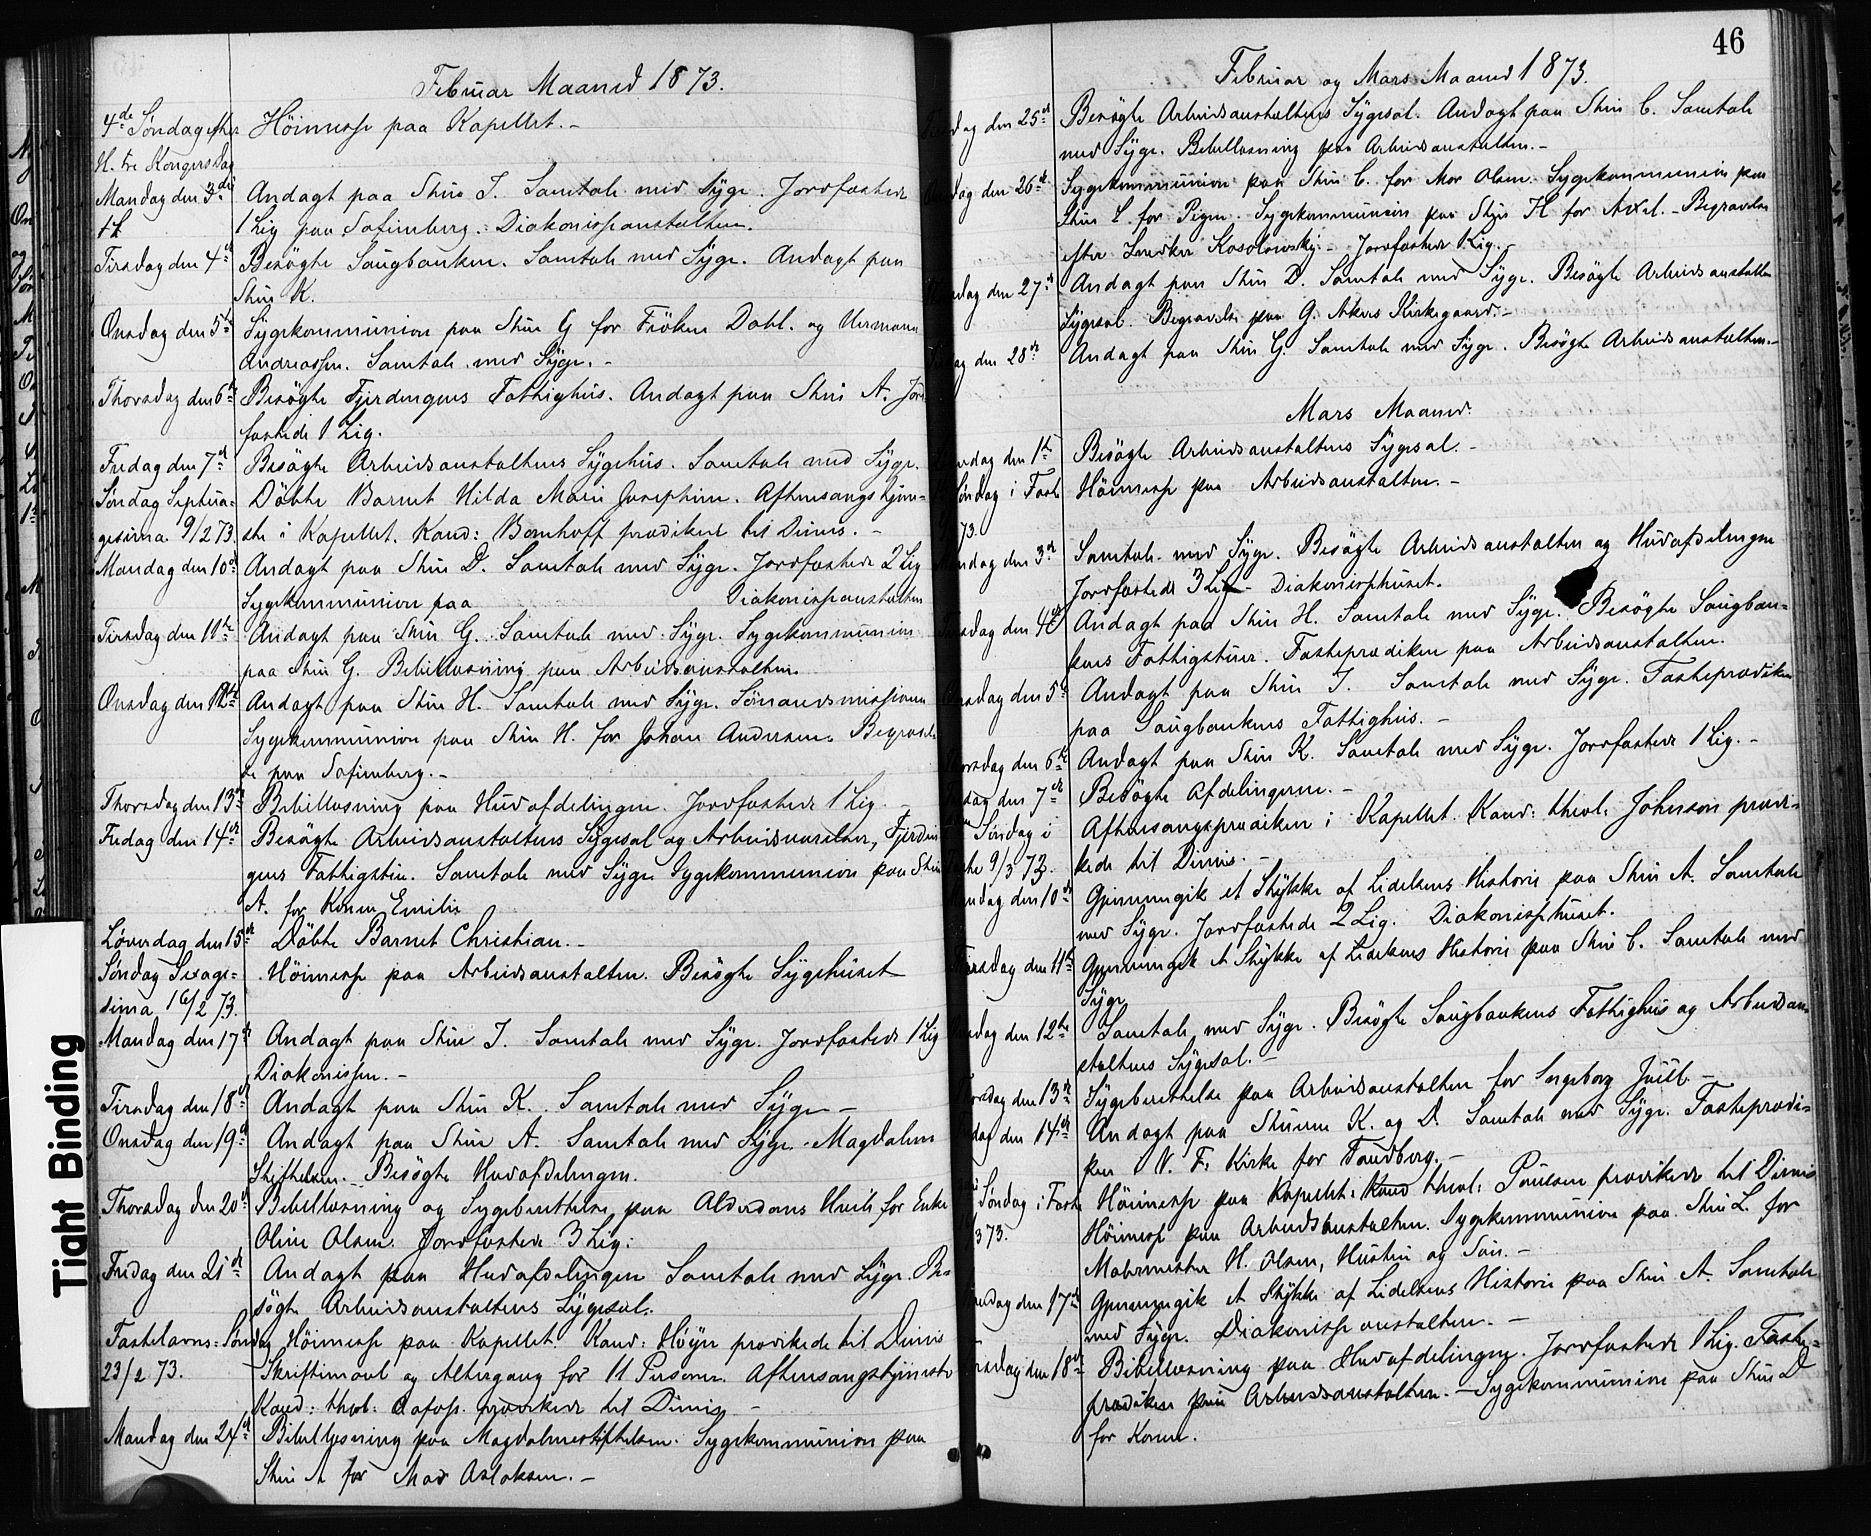 Februar Maaned 1873.
4de Søndag efter Höimesse paa Kapellet. –
H. tre Kongers Dag
Mandag den 3die Andagt paa Stue I. Samtale med Syge. Jordfæstede
1 Lig paa Sofienberg. Diakonisseanstalten.
Tirsdag den 4de Besögte Saugbanken. Samtale med Syge. Andagt paa
Stue K.
Onsdag den 5te Sygekommunion paa Stue G for Fröken Dahl. og Herman
Andreassen. Samtale med Syge. –
Thorsdag den 6te Besögte Fjerdingens Fattighus. Andagt paa Stue A. Jord
fæstede 1 Lig.
Fredag den 7de Besögte Arbeidsanstaltens Sygehus. Samtale med Syge.
Søndag Septua- Döbte Barnet Hilda Marie Josephine. Aftensangstjene-
gesima 9/2 73. ste i Kapellet. Kand: Bomhoff prædikede til Dimis. –
Mandag den 10de Andagt paa Stue D. Samtale med Syge. Jordfæstede 2 Lig
Sygekommunion paa Diakonisseanstalten
Tirsdag den 11te Andagt paa Stue G. Samtale med Syge. Sygekommunion
paa Stue G. Bibellæsning paa Arbeidsanstalten
Onsdag den 12te Andagt paa Stue H. Samtale med Syge. Sömandsmissionen
Sygekommunion paa Stue H. for Johan Andersen. Begravel
se paa Sofienberg. –
Thorsdag den 13de Bibellæsning paa Hudafdelingen. Jordfæstede 1 Lig. –
Fredag den 14de Besögte Arbeidsanstaltens Sygesal og Arbeidsværelser, Fjerdin
gens Fattigstue. Samtale med Syge Sygekommunion paa Stue
A. for Konen Emilie
Løverdag den 15de Döbte Barnet Christian. –
Søndag Sexage- Höimesse paa Arbeidsanstalten. Besögte Sygehuset
sima 16/2 73.
Mandag den 17de Andagt paa Stue I. Samtale med Syge. Jordfæstede 1 Lig
Diakonissen. –
Tirsdag den 18de Andagt paa Stue K. Samtale med Syge –
Onsdag den 19de Andagt paa Stue A. Samtale med Syge. Magdalene
Stiftelsen. Besögte Hudafdelingen.
Thorsdag den 20de Bibellæsning og Sygeberettelse paa Alderdoms Hvile for Enke
Oline Olsen. Jordfæstede 3 Lig.
Fredag den 21de Andagt paa Hudafdelingen Samtale med Syge. Be-
sögte Arbeidsanstaltens Sygesal.
Fastelavns-Søndag Höimesse paa Kapellet. Kand: Höye prædikede til Dimis
23/2 73. Skriftemaal og Altergang for 11 Personer. Aftensangstjeneste
Kand: theol: prædikede til Dimis –
Mandag den 24de Bibellæsning paa Magdalenestiftelsen. Sygekommunion paa
Stue A for Mad Aslaksen. –
46
Februar og Mars Maaned 1873.
dag den 25de Besögte Arbeidsanstaltens Sygesal. Andagt paa Stue C. Samtale
med Syge. Bibellæsning paa Arbeidsanstalten. –
dag den 26de Sygekommunion paa Stue C. for Mor Olsen. Sygekommunion paa
Stue L for Pigen. Sygekommunion paa Stue H for Axel. – Begravelse
efter Snedker Kosolowsky. – Jordfæstede 1 Lig. –
dag den 27de Andagt paa Stue D. Samtale med Syge. Besögte Arbeidsanstalten
Sygesal. Begravelse paa G. Akers Kirkegaard. –
ag den 28de Andagt paa Stue G. Samtale med Syge. Besögte Arbeidsanstalten. –
Mars Maaned.
dag den 1ste Besögte Arbeidsanstaltens Sygesal. –
Søndag i Faste Höimesse paa Arbeidsanstalten. –
73.
ndag den 3de Samtale med Syge. Besögte Arbeidsanstalten og Hudafdelingen
Jordfæstede 3 Lig – Diakonissehuset.
sdag den 4de Andagt paa Stue H. Samtale med Syge. Besögte Saugban-
kens Fattigstuer. Fasteprædiken paa Arbeidsanstalten.
sdag den 5te Andagt paa Stue I. Samtale med Syge. Fasteprædiken
paa Saugbankens Fattighus. –
orsdag den 6te Andagt paa Stue K. Samtale med Syge. Jordfæstede 1 Lig. –
dag den 7de Besögte Afdelingerne. –
Søndag i Aftensangsprædiken i Kapellet Kand: theol: Johnson prædi-
ste 9/3 73. kede til Dimis. –
ndag den 10de Gjennemgik et Stykke af Lidelsens Historie paa Stue A. Samtale
med Syge. Jordfæstede 2 Lig. Diakonissehuset.
irsdag den 11te Gjennemgik et Stykke af Lidelsens Historie paa Stue C. Samtale med
Syge
dag den 12te Samtale med Syge. Besögte Saugbankens Fattighus og Arbeidsan-
staltens Sygesal. –
orsdag den 13de Sygeberettelse paa Arbeidsanstalten for Ingeborg Juell. –
dag den 14de Andagt paa Stuerne K. og D. Samtale med Syge. Fasteprædi-
ken V. F. Kirke for Tandberg. –
Søndag i Faste Höimesse paa Kapellet. Kand theol: Poulsen prædikede til Dimis
3 73. Höimesse paa Arbeidsanstalten. Sygekommunion paa Stue L. for
Malermester H. Olsen, Hustru og Sön. –
ndag den 17de Gjennemgik et Stykke af Lidelsens Historie paa Stue A. Samtale
med Syge. Diakonisseanstalten. –
irsdag den 18de Bibellæsning paa Hudafdelingen. Jordfæstede 1 Lig. Faste-
prædiken paa Arbeidsanstalten. – Sygekommunion paa Stue D
for Konen.
Tight Binding